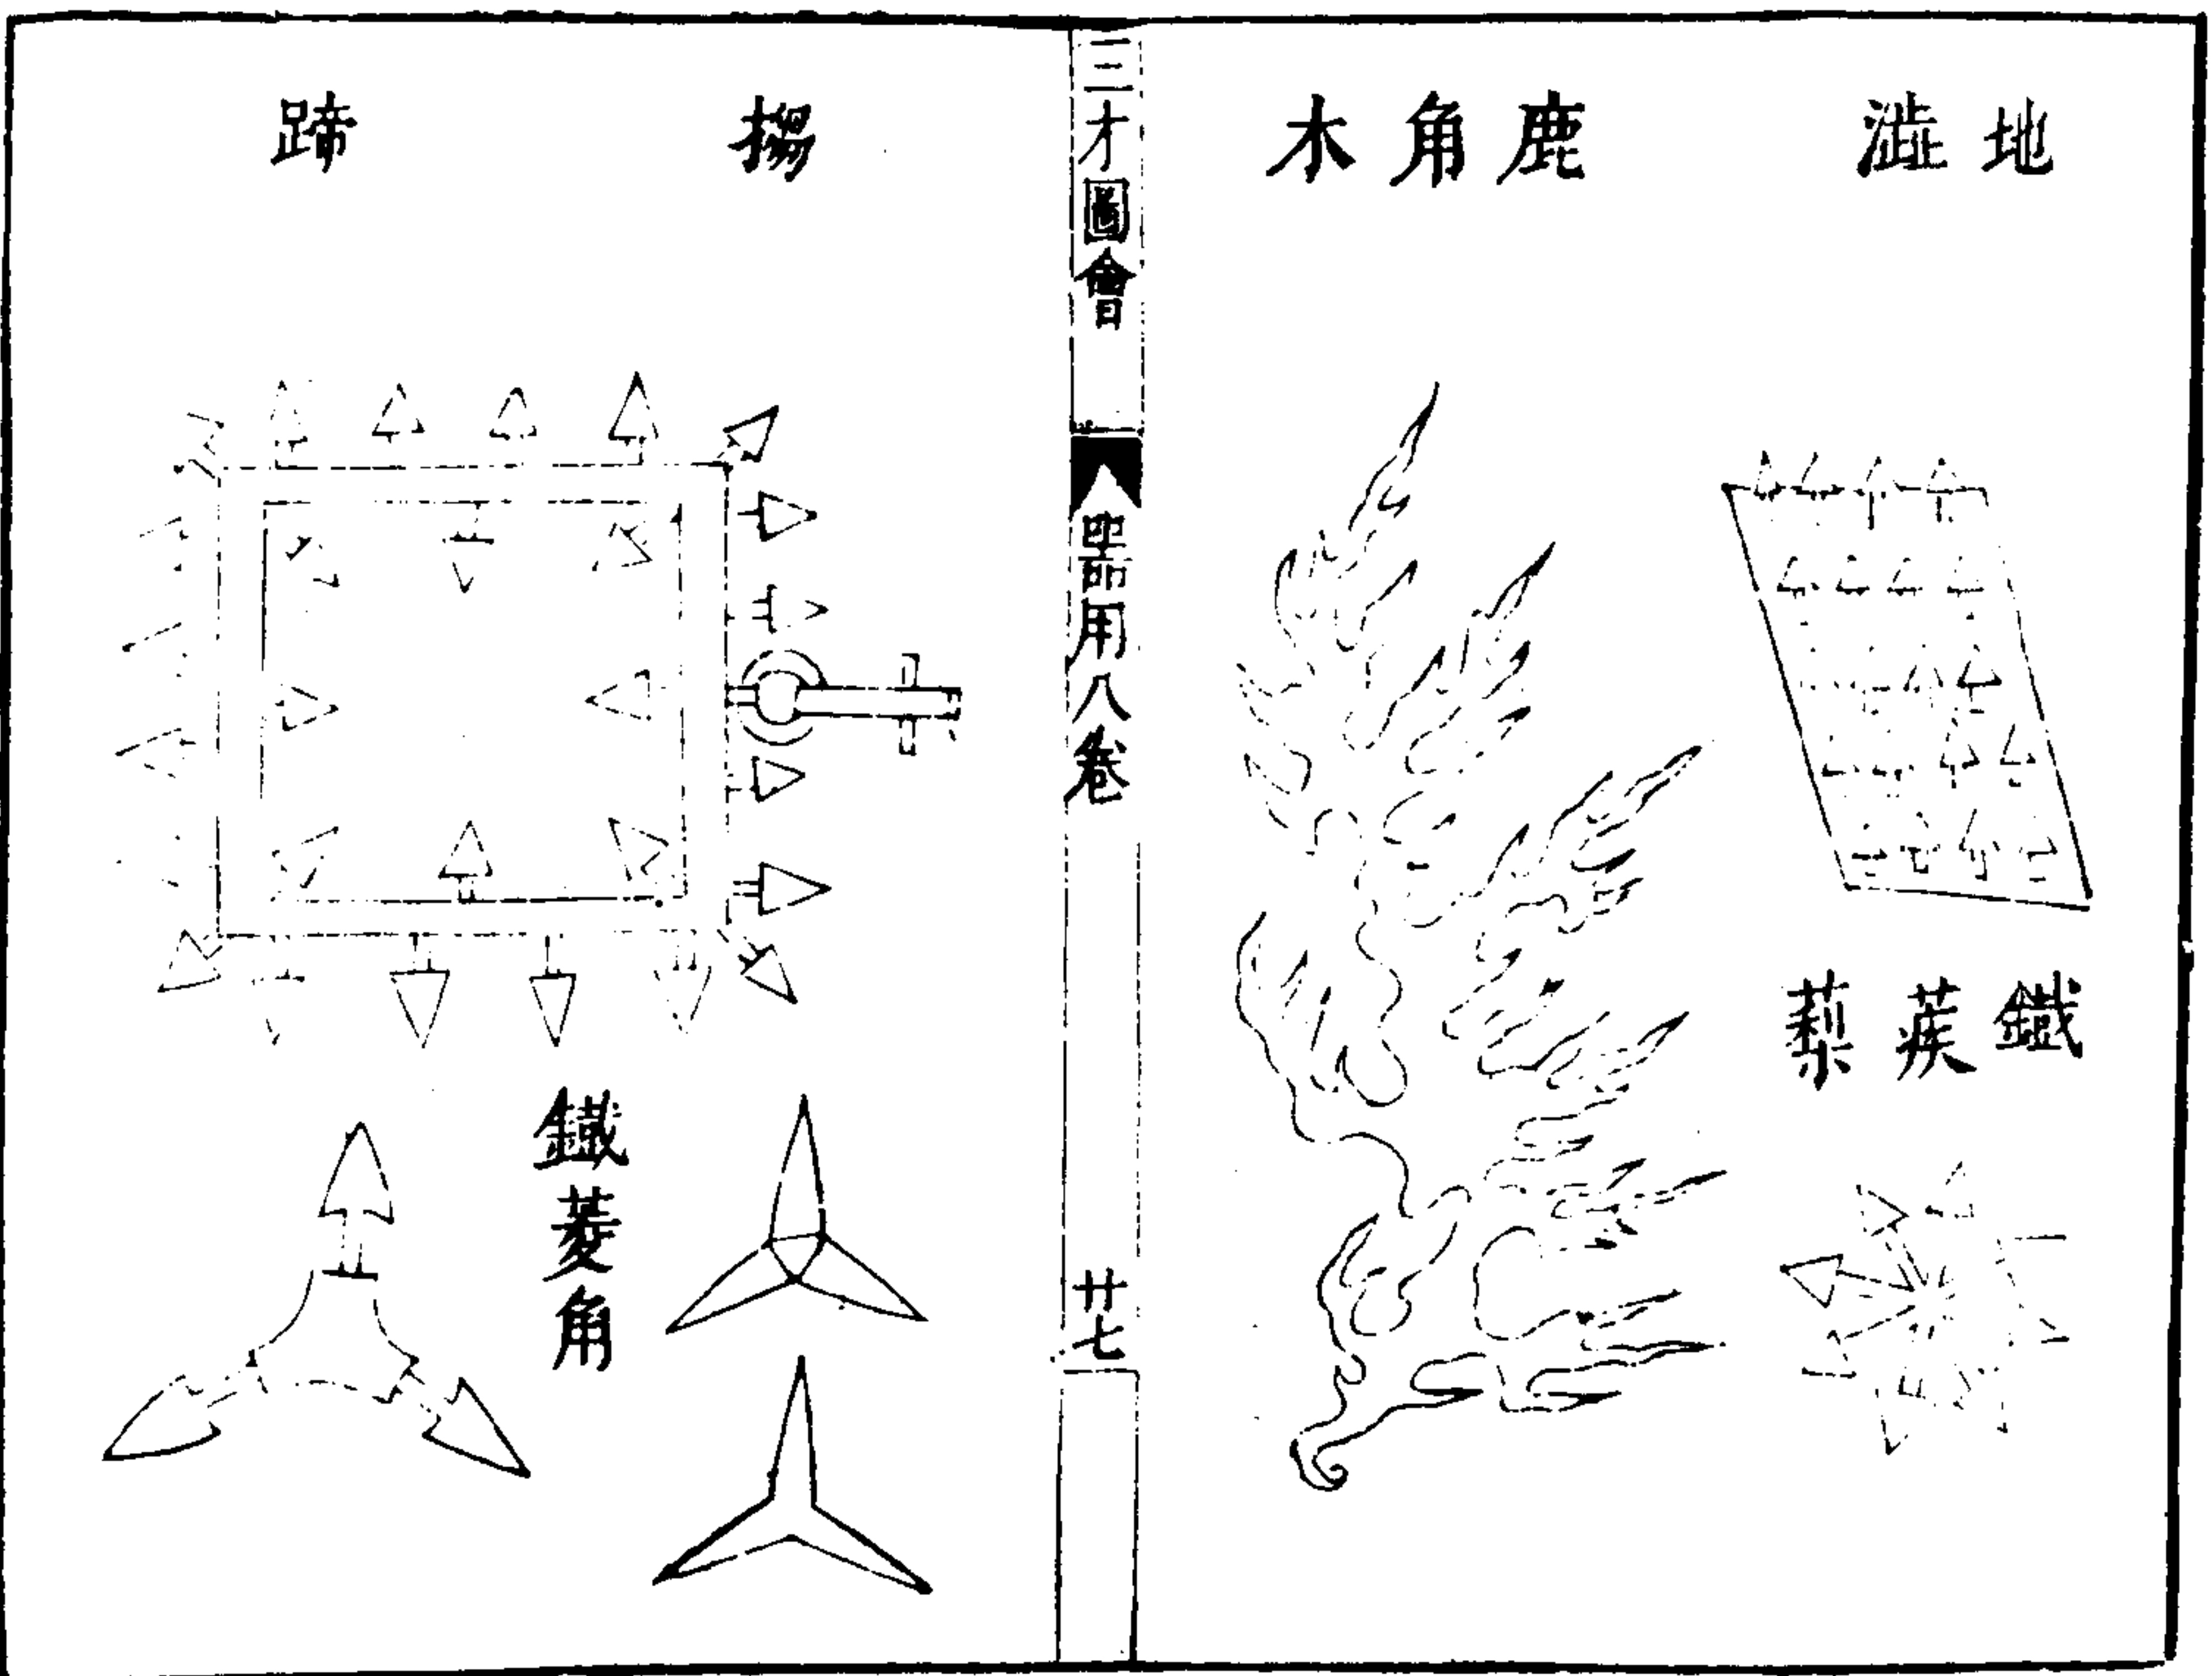 地澁
鹿角木
鐵蒺蔾
三才圖會
器用八卷
廿七
搨蹄
鐵菱角